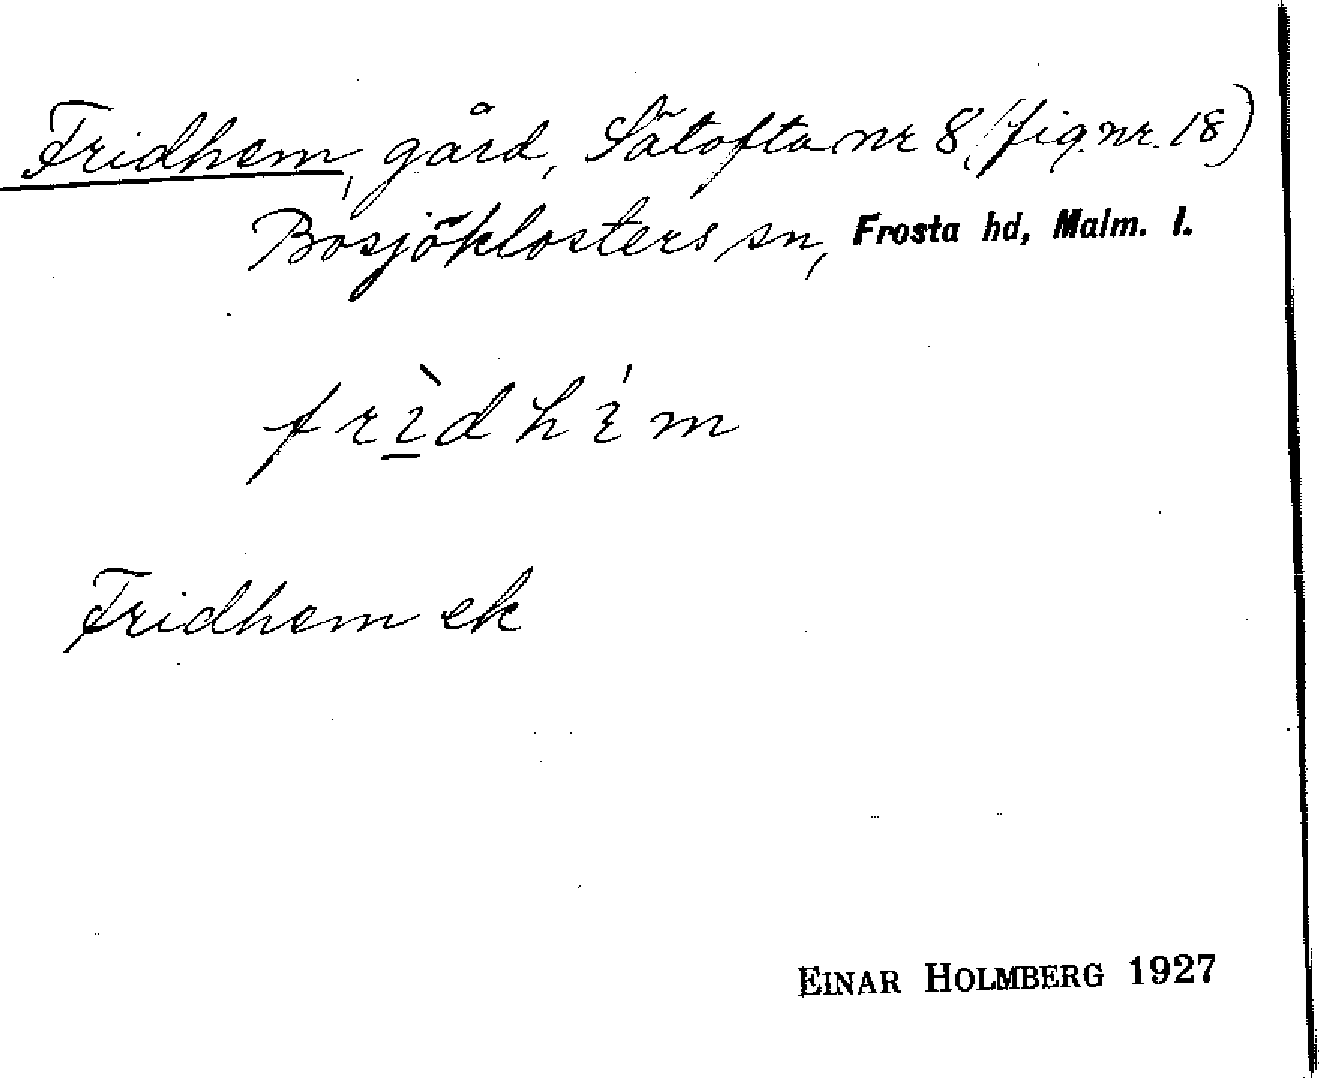 Fridhem, gård, Sätofta nr 8 (fig. nr. 18)
Bosjöklosters sn, Frosta hd, Malm. l.
frìdhém
Fridhem ek
EINAR HOLMBERG 1927